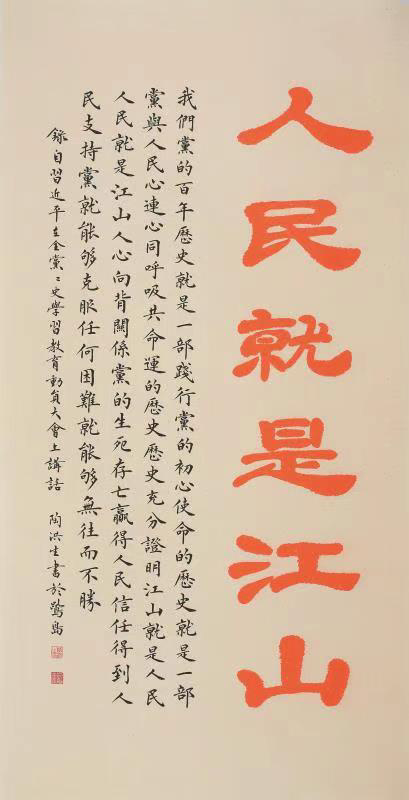 人民就是江山
我們黨的百年歷史就是一部踐行黨的初心使命的歷史就是一部
黨與人民心連心同呼吸共命運的歷史歷史充分證明江山就是人民
人民就是江山人心向背關係黨的生死存亡贏得人民信任得到人
民支持黨就能够克服任何困難就能够無往而不勝
錄自習近平在全黨黨史學習教育動員大會上講話 陶洪生書於鷺島